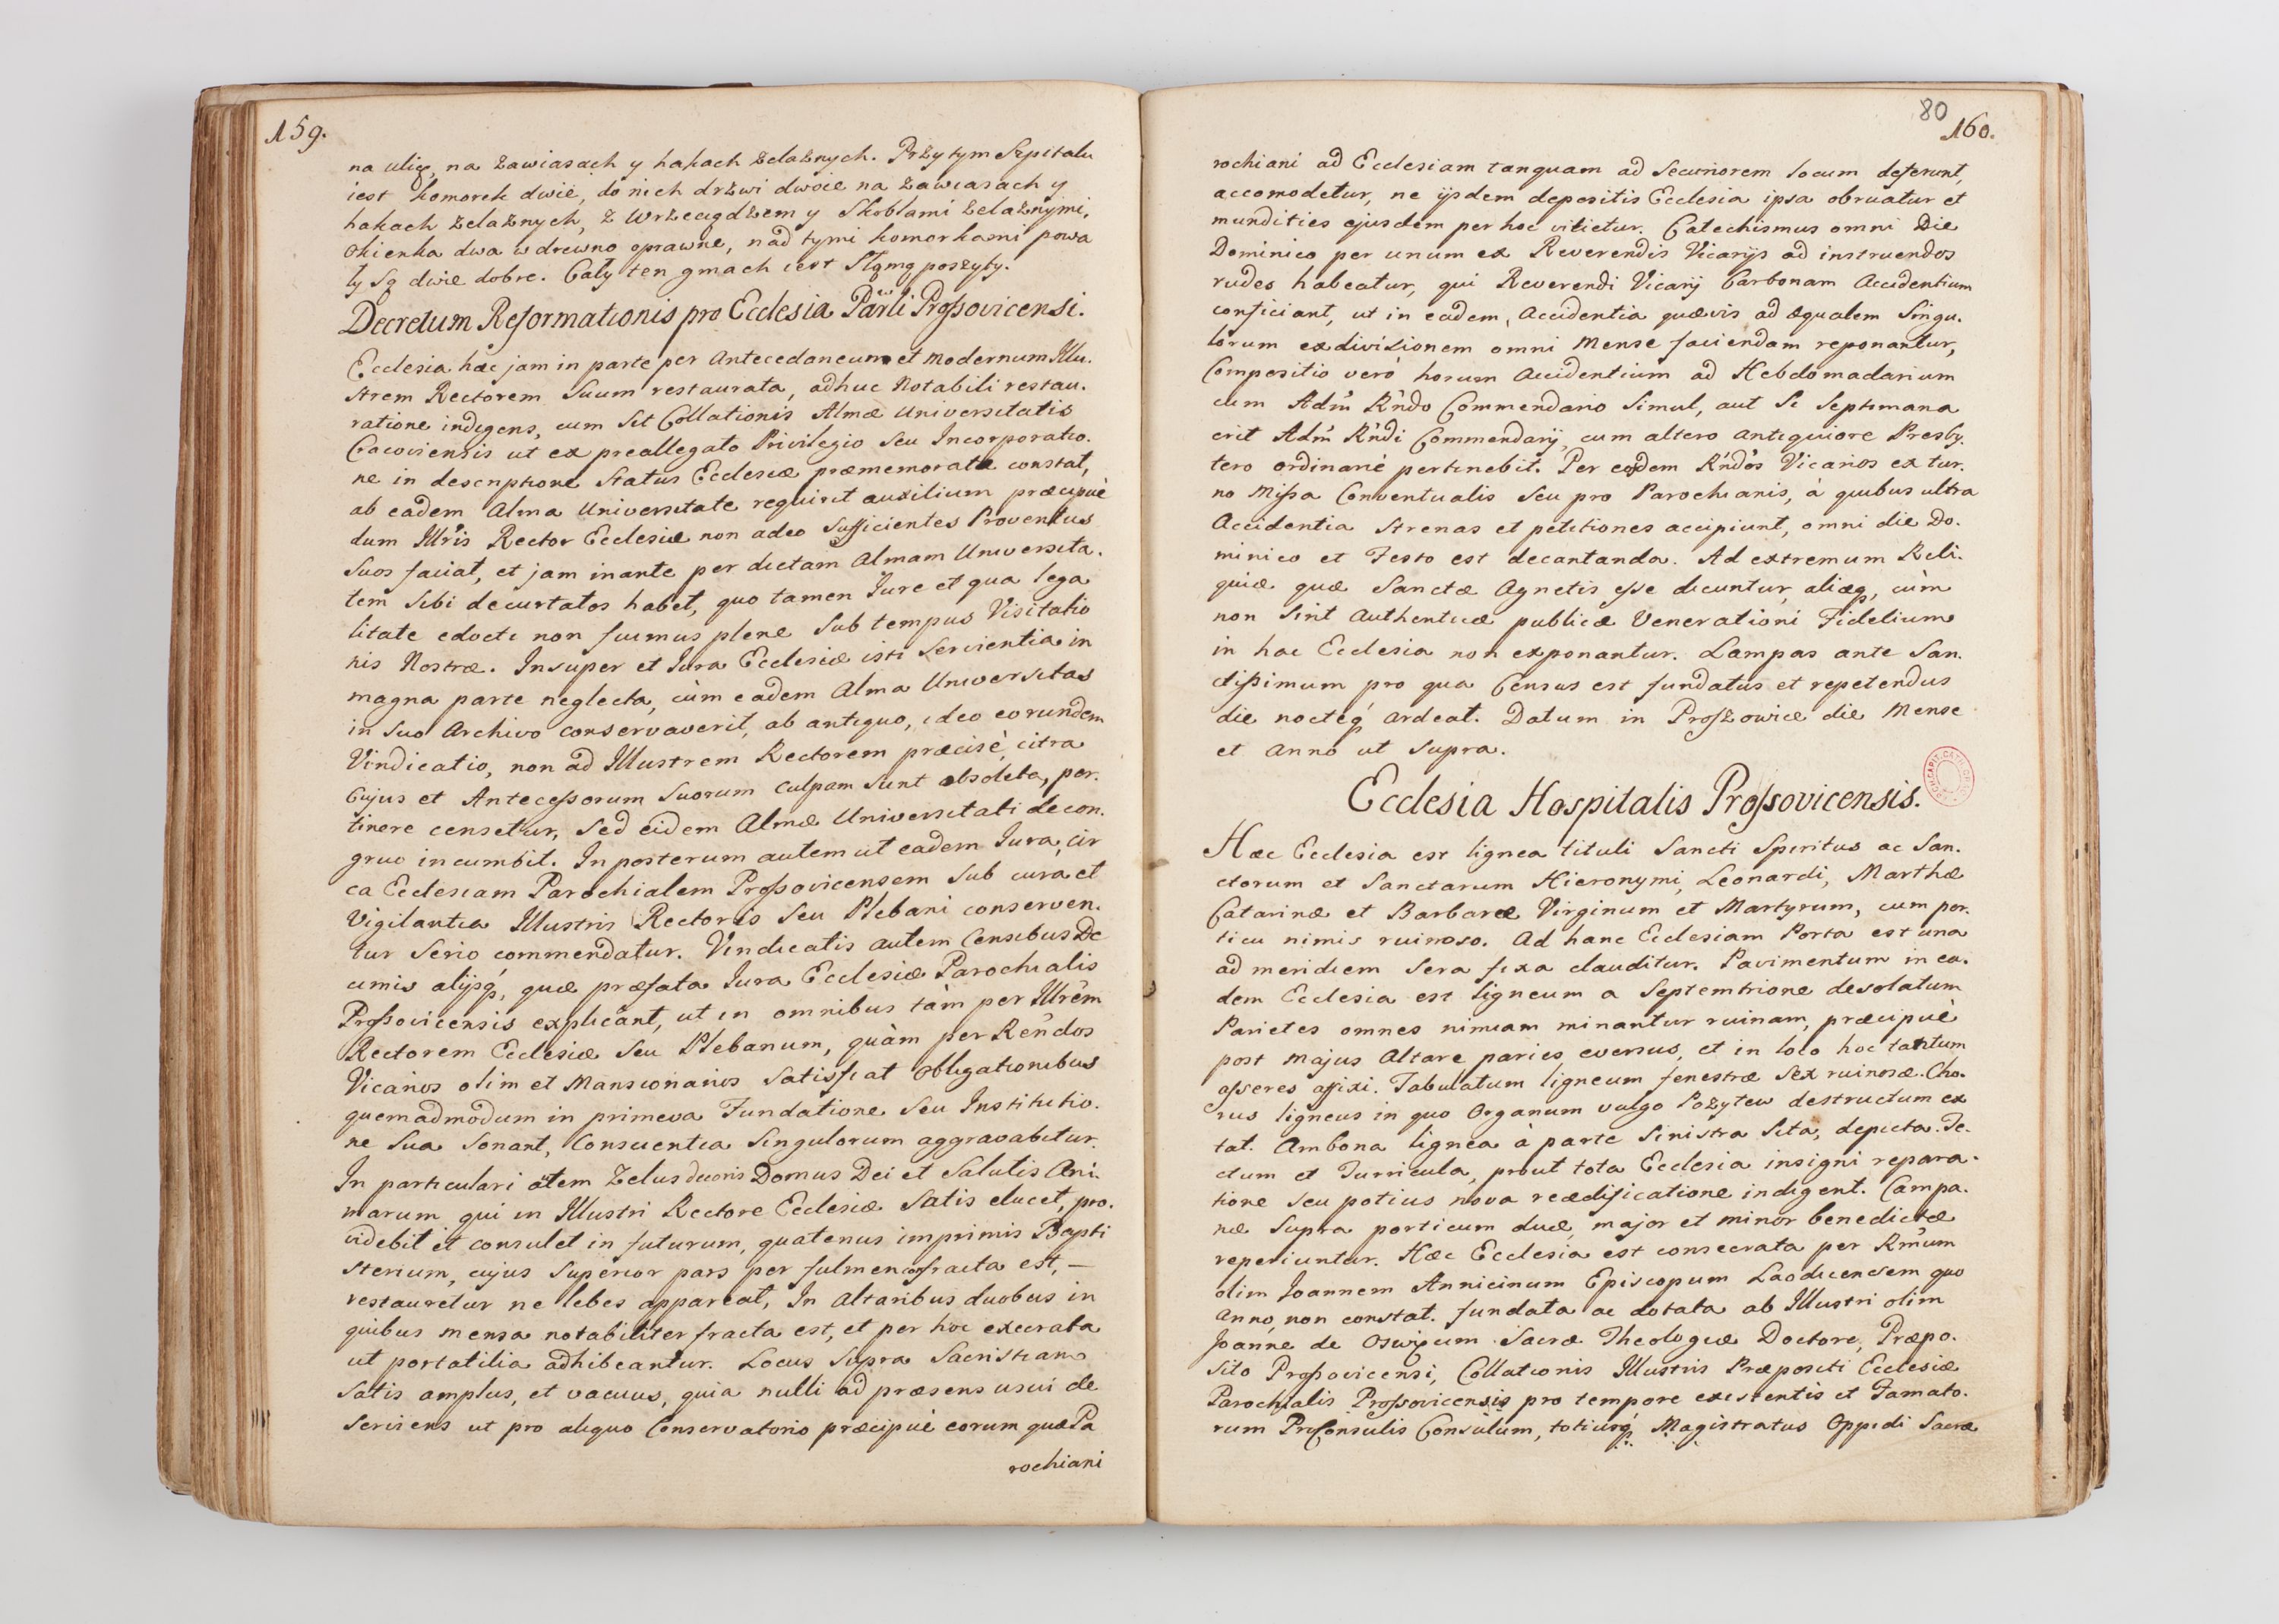 159.
na ulię, na zawiasach y hakach żelaznych. Przy tym Szpitalu
iest komorek dwie, do nich drzwi dwoie na zawiasach y
hakach żelaznych, z wrzeciądzem y skoblami żelaznymi,
okienka dwa w drewno oprawne, nad tymi komorkami powa
ły są dwie dobre. Cały ten gmach iest słomą poszyty.
Decretum Reformationis pro Ecclesia Parli Prossovicensi.
Ecclesia hæc jam in parte per Antecedaneum et modernum Illu.
strem Rectorem suum restaurata, adhuc notabili restau.
ratione indigens, cum sit Collationis Almæ Universitatis
Cracoviensis ut ex preallegato Privilegio seu Incorporatio.
ne in descriptione Status Ecclesiæ præmemorata constat,
ab eadem Alma Universitate requirit auxilium præcipuè
dum Illris Rector Ecclesiæ non adeo sufficientes Proventus
suos faciat, et jam inante per dictam Almam Universita.
tem sibi decurtatos habet, quo tamen Jure et qua lega
litate edocti non fuimus plene sub tempus Visitatio
nis Nostræ. Insuper et Iura Ecclesiæ isti servientia in
magna parte neglecta, cùm eadem Alma Universitas
in suo Archivo conservaverit, ab antiquo, ideo eorundem
Vindicatio, non ad Illustrem Rectorem præcisè, citra
Cujus et Antecessorum suorum culpam sunt obsoleta, per.
tinere censetur, sed eidem Almæ Universitati decon.
gruo incumbit. In posterum autem ut eadem Iura, cir
ca Ecclesiam Parochialem Prossovicensem sub cura et
vigilantia Illustris Rectoris seu Plebani conserven.
tur serio commendatur. Vindicatis autem Censibus De
cimis alijsq, quæ præfata Iura Ecclesiæ Parochialis
Prossovicensis explicant, ut in omnibus tàm per Illrem
Rectorem Ecclesiæ seu Plebanum, quàm per Rendos
Vicarios olim et Mansionarios satisfiat obligationibus
quemadmodum in primeva Fundatione seu Institutio.
ne sua sonant, Conscientia singulorum aggravabitur.
In particulari atem Zelus decoris Domus Dei et Salutis Ani.
marum qui in Illustri Rectore Ecclesiæ satis elucet, pro.
videbit et consulet in futurum, quatenus imprimis Bapti
sterium, cujus superior pars per fulmen confracta est, —
restauretur ne lebes appareat, In Altaribus duobus in
quibus mensa notabiliter fracta est, et per hoc execrata
ut portatilia adhibeantur. Locus supra Sacristiam
satis amplus, et vacuus, quia nulli ad præsens usui de
serviens ut pro aliquo Conservatorio præcipuè eorum quæ Pa
rochiani
80
160.
rochiani ad Ecclesiam tanquam ad securiorem locum deferunt,
accomodetur, ne ijsdem depositis Ecclesia ipsa obruatur et
mundities ejusdem per hoc vitietur. Catechismus omni Die
Dominico per unum ex Reverendis Vicarijs ad instruendos
rudes habeatur, qui Reverendi Vicarij Carbonam Accidentium
conficiant, ut in eadem, Accidentia quævis ad æqualem Singu.
lorum ex divisionem omni Mense faciendam reponantur,
Compositio verò horum Accidentium ad Hebdomadarium
cum Adm Rndo Commendario simul, aut si septimana
erit Adm Rndi Commendarij, cum altero antiquiore Presby.
tero ordinariè pertinebit. Per eosdem Rndos Vicarios ex tur.
no Missa Conventualis seu pro Parochianis, à quibus ultra
Accidentia strenas et petitiones accipiunt, omni die Do.
minico et Festo est decantanda. Ad extremum Reli.
quiæ quæ Sanctæ Agnetis esse dicuntur, aliæq, cùm
non sint Authenticæ publicæ Venerationi Fidelium
in hac Ecclesia non exponantur. Lampas ante San.
ctissimum pro qua Census est fundatus et repetendus
die nocteq ardeat. Datum in Proszowice die Mense
et Anno ut supra.
Ecclesia Hospitalis Prossovicensis.
Hæc Ecclesia est lignea tituli Sancti Spiritus ac San.
ctorum et Sanctarum Hieronymi, Leonardi, Marthæ
Catarinæ et Barbaræ Virginum et Martyrum, cum por.
ticu nimis ruinoso. Ad hanc Ecclesiam Porta est una
ad meridiem sera fixa clauditur. Pavimentum in ea.
dem Ecclesia est ligneum a Septemtrione desolatum
Parietes omnes nimiam minantur ruinam, præcipuè
post majus Altare paries eversus, et in loco hoc tantum
asseres affixi. Tabulatum ligneum fenestræ sex ruinosæ. Cho.
rus ligneus in quo Organum vulgo Pozytew destructum ex
tat. Ambona lignea à parte sinistra sita, depicta. Te.
ctum et Turricula, prout tota Ecclesia insigni repara.
tione seu potius nova reædificatione indigent. Campa.
næ supra porticum duæ, major et minor benedictæ
reperiuntur. Hæc Ecclesia est consecrata per Rmum
olim Joannem Annicinum Episcopum Laodicensem quo
anno non constat. fundata ac dotata ab Illustri olim
Joanne de Oswięcim Sacræ Theologiæ Doctore, Præpo.
sito Prossovicensi, Collationis Illustris Præpositi Ecclesiæ
Parochialis Prossovicensis pro tempore existentis et Famato.
rum ProConsulis Consulum, totiusq Magistratus Oppidi Sacræ